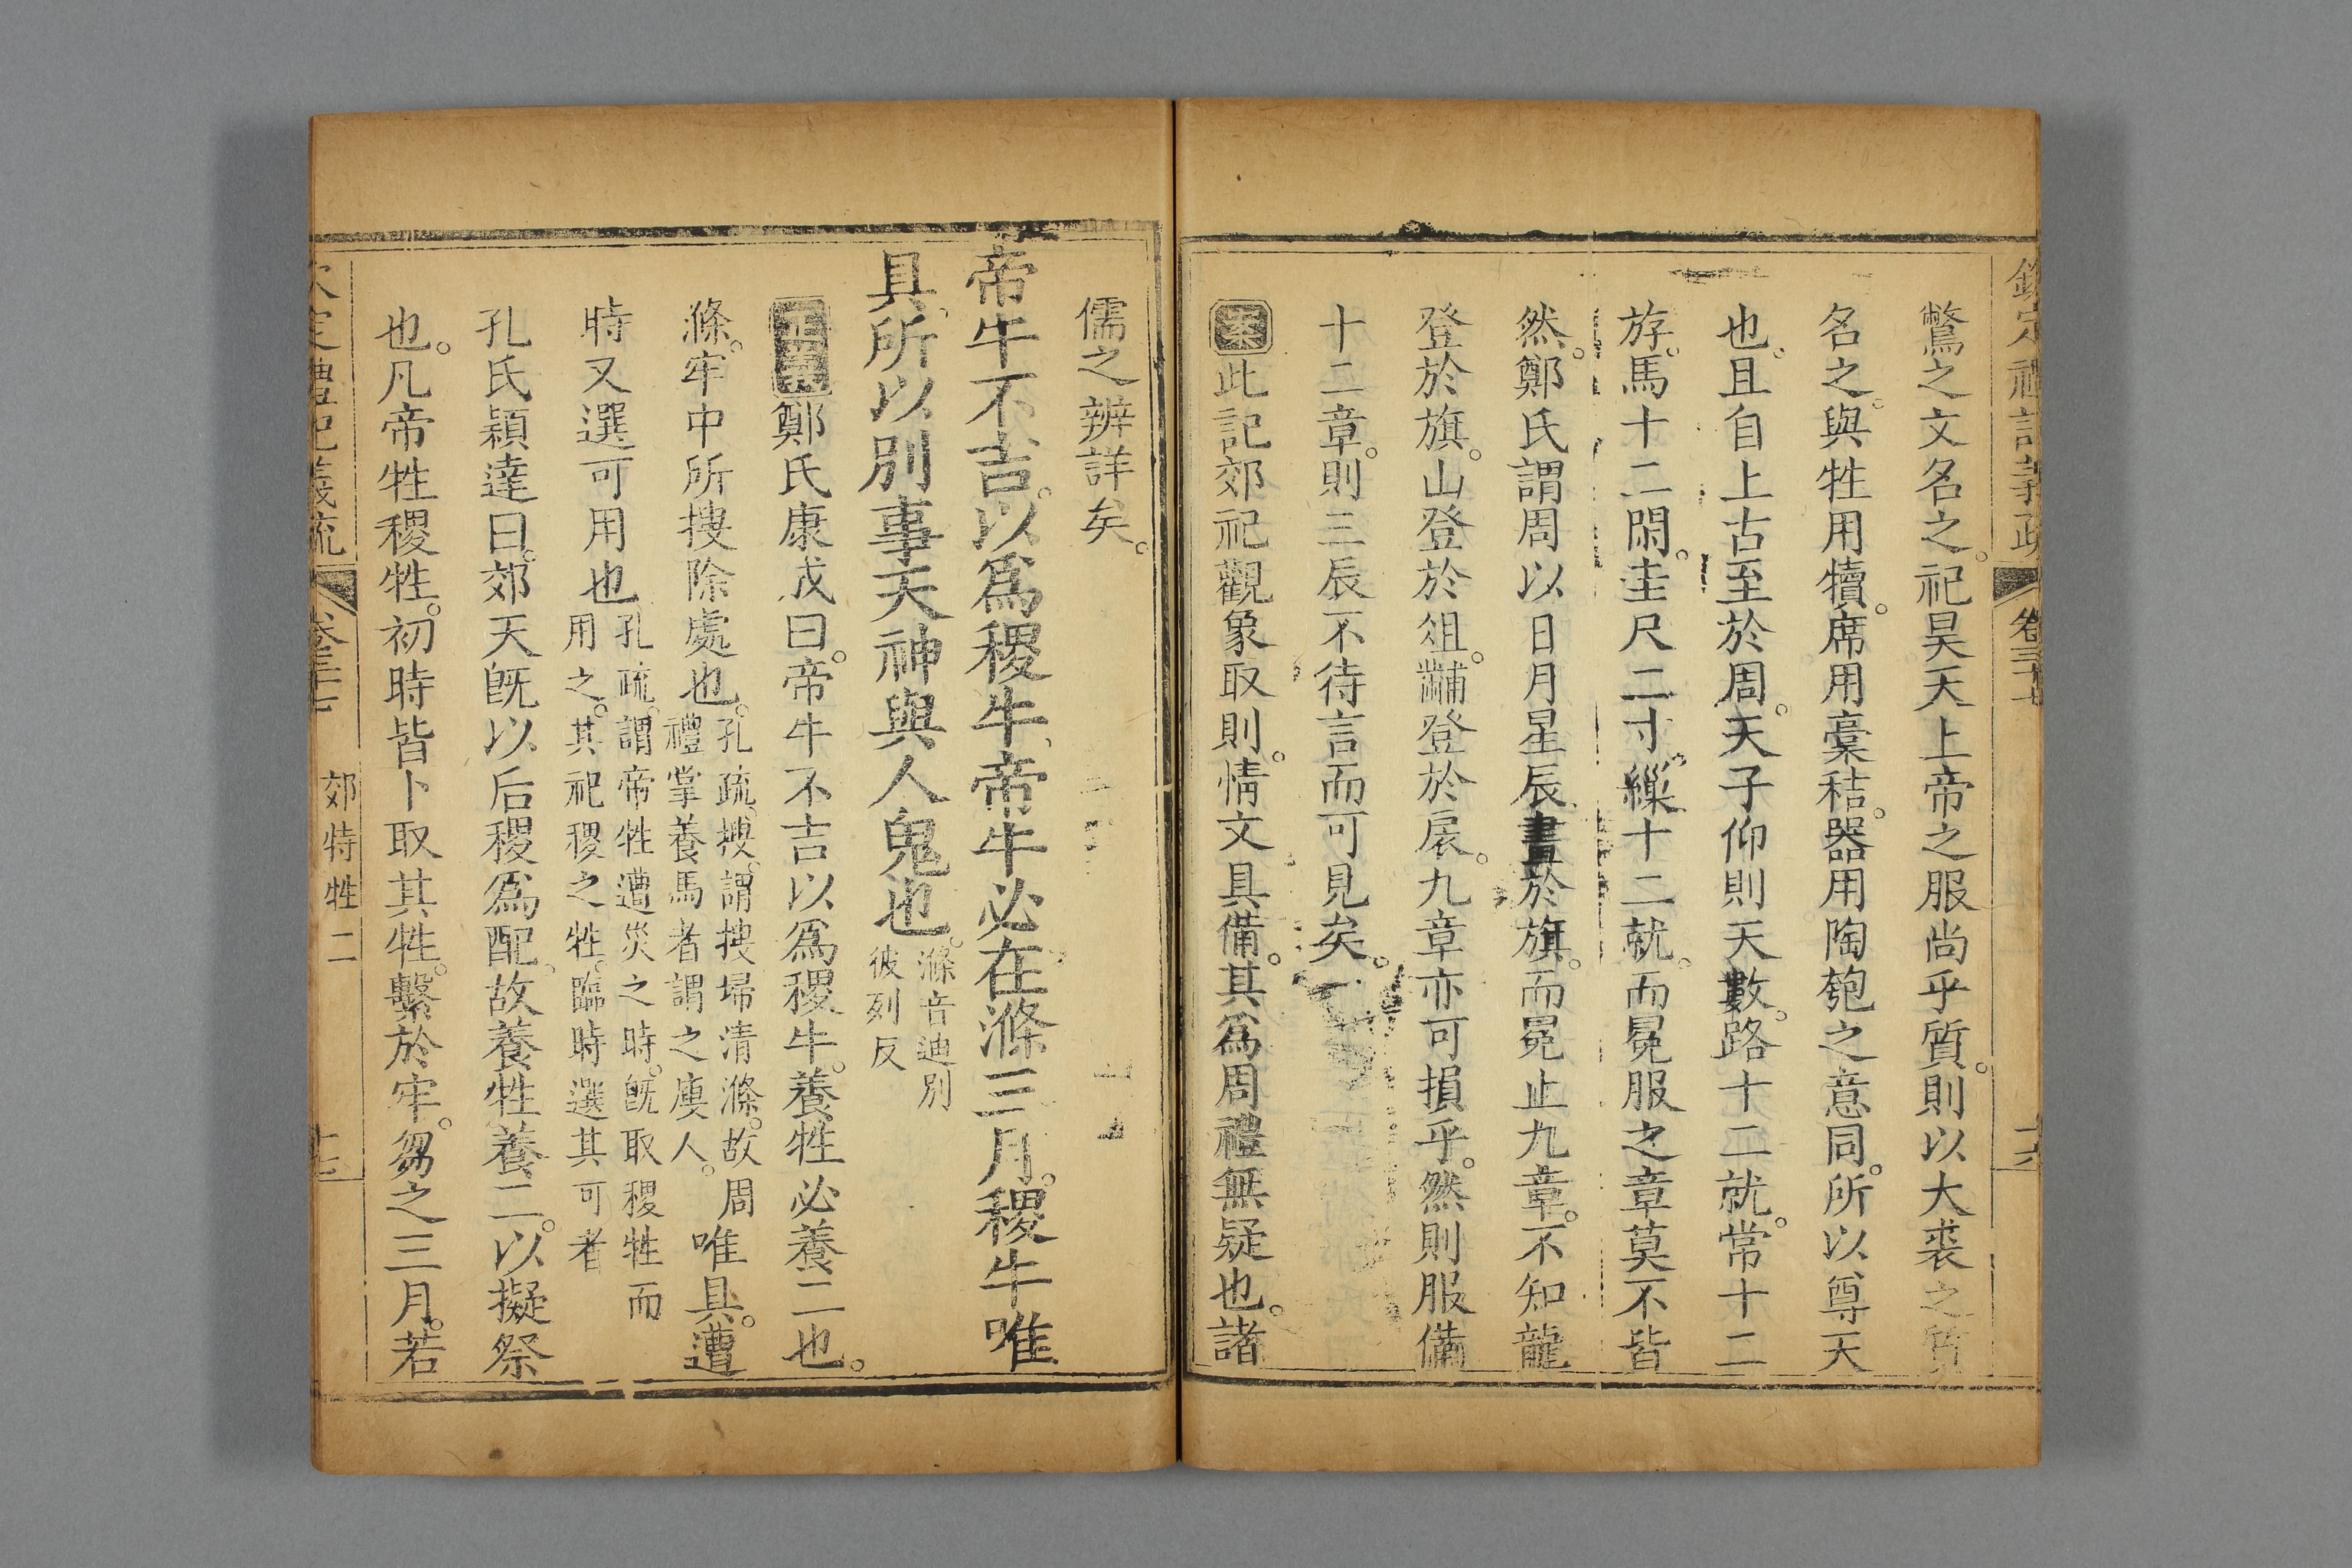 鷩之文名之。祀昊天上帝之服尚乎質。則以大裘之質
名之。與牲用犢。席用槀秸。器用陶匏之意同。所以尊天
也。且自上古至於周。天子仰則天數。路十二就。常十二
斿。馬十二閑。圭尺二寸。繅十二就。而冕服之章莫不皆
然。鄭氏謂周以日月星辰。畫於旗。而冕止九章。不知龍
登於旗。山登於俎。黼登於扆。九章亦可損乎。然則服備
十二章。則三辰不待言而可見矣。
案此記郊祀觀象取則。情文具備。其爲周禮無疑也。諸
儒之辨詳矣。
帝牛不吉。以爲稷牛、帝牛必在滌三月。稷牛唯
具、所以別事天神與人鬼也。滌音迪別
彼列反
正義鄭氏康成曰。帝牛不吉以爲稷牛。養牲必養二也。
滌。牢中所搜除處也。孔疏、搜。謂搜埽清滌。故周
禮掌養馬者謂之廋人。唯具。遭
時又選可用也孔疏。謂帝牲遭災之時。旣取稷牲而
用之。其祀稷之牲。臨時選其可者
孔氏穎達曰。郊天旣以后稷爲配。故養牲養二。以擬祭
也。凡帝牲稷牲。初時皆卜取其牲。繫於牢。芻之三月。若
郊特牲二